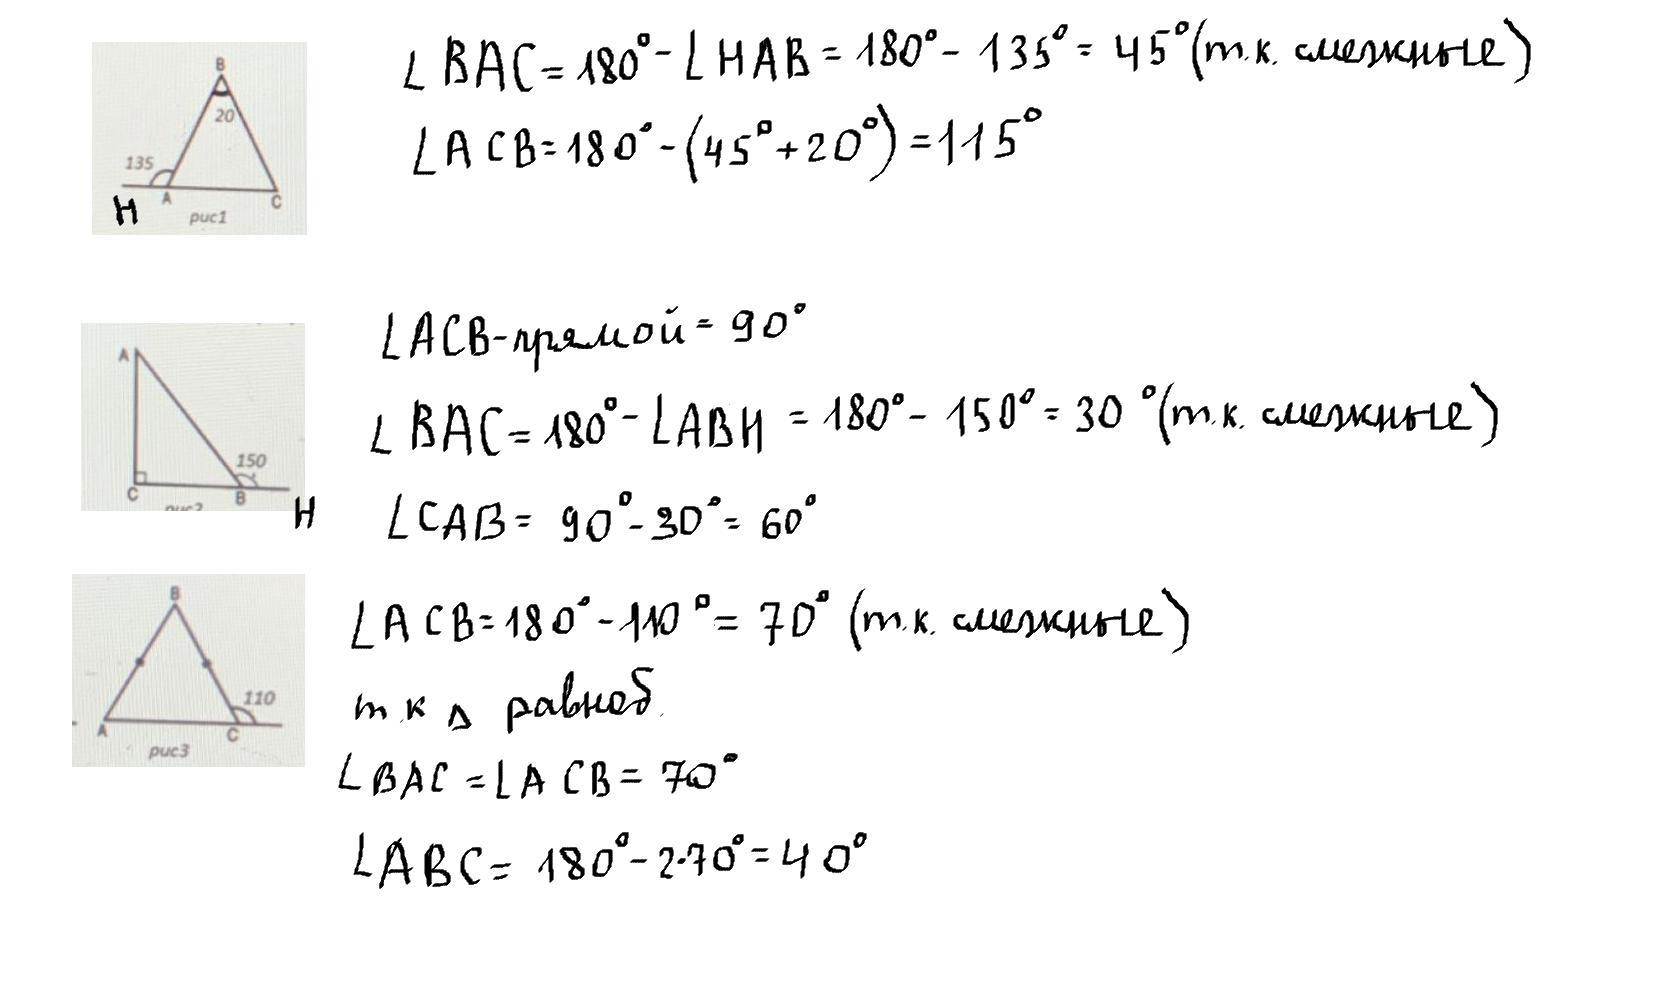 B
20
135
A
C
H
рис1
∠BAC=180°-∠HAB=180°-135°=45°(т.к. смежные)
∠ACB=180°-(45°+20°)=115°
A
150
C
B
рис2
H
∠ACB-прямой=90°
∠BAC=180°-∠ABH=180°-150°=30°(т.к. смежные)
∠CAB=90°-30°=60°
B
110
A
C
рис3
∠ACB=180°-110°=70° (т.к. смежные)
т.к Δ равноб.
∠BAC=∠ACB=70°
∠ABC=180°-2·70°=40°